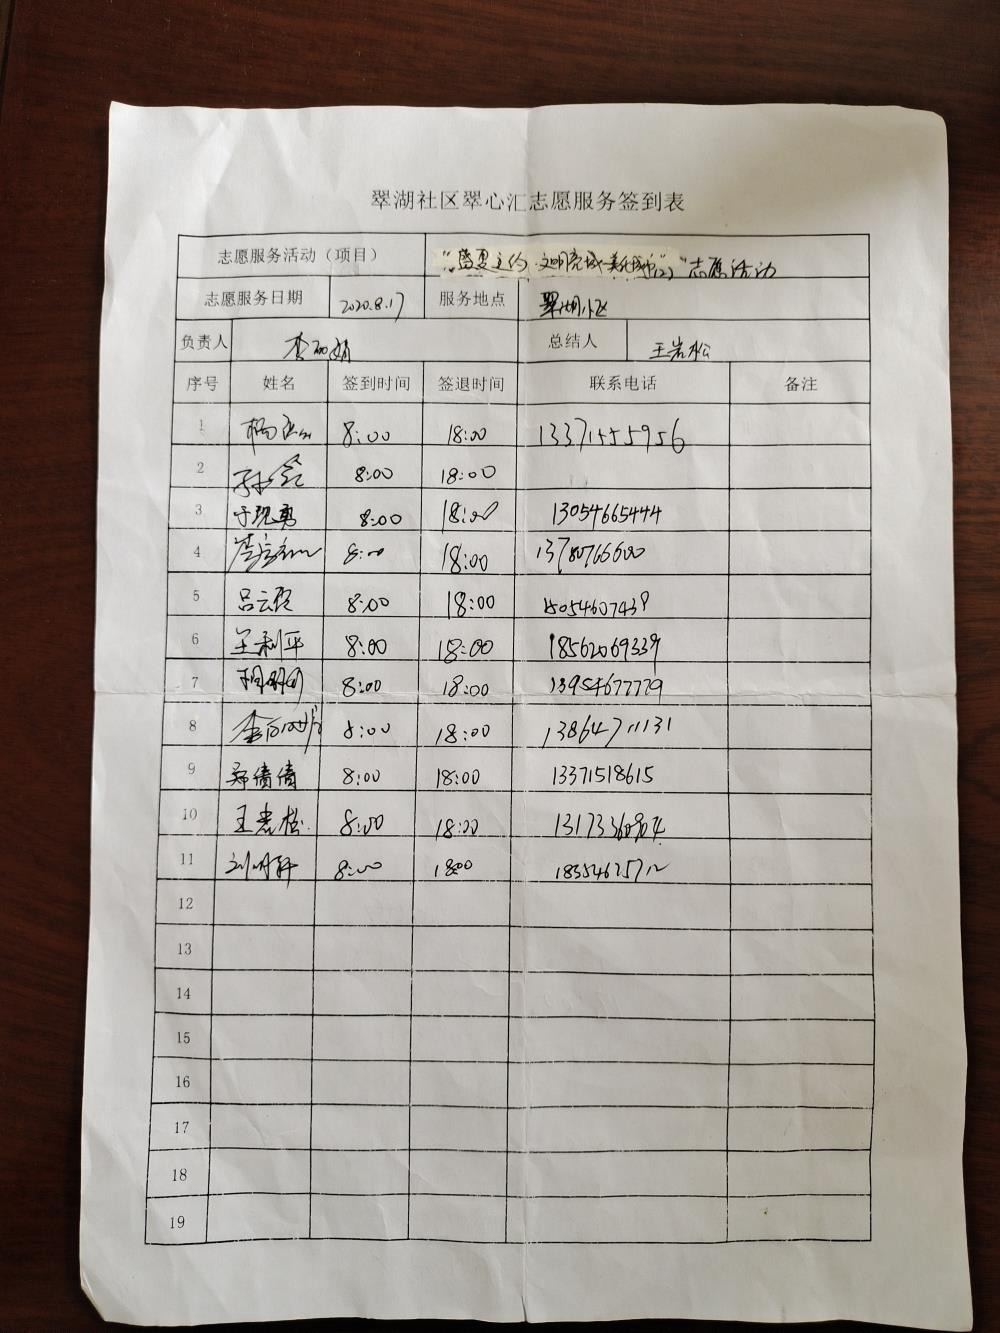 翠湖社区翠心汇志愿服务签到表
志愿服务活动（项目） "盛夏之约·文明亮城·美化城市"(2)"志愿活动
志愿服务日期 2020.8.17 服务地点 翠湖小区
负责人 李丽娟 总结人 王岩松
序号 姓名 签到时间 签退时间 联系电话 备注
1 8:00 18:00 13371555956
2 8:00 18:00
3 于现勇 8:00 18:00 13054665444
4 8:00 18:00 13780766600
5 吕云霞 8:00 18:00 15054607439
6 王利平 8:00 18:00 18562069339
7 8:00 18:00 13954677779
8 8:00 18:00 13864711131
9 郑倩倩 8:00 18:00 13371518615
10 8:00 18:00
11 刘明轩 8:00 18:00 18354625712
12
13
14
15
16
17
18
19